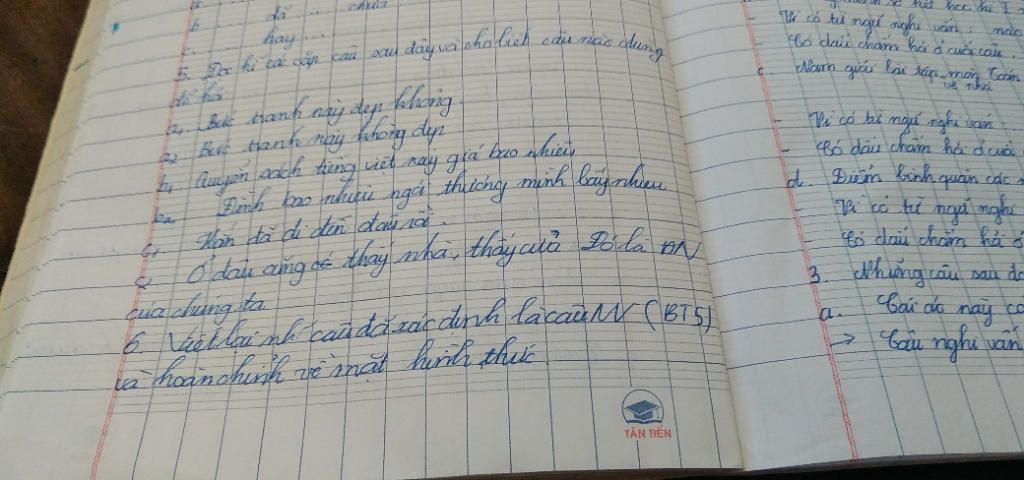 đã ... chưa
b
c. hay ...
5. Đọc kĩ các cặp câu sau đây và cho biết câu nào dùng
để hỏi
a1. Bức tranh này đẹp không
a2 Bức tranh này không đẹp
b1 Quyển sách tiếng việt này giá bao nhiêu
b2 Đình bao nhiêu ngói thương mình bấy nhiêu
c1 Hắn đã đi đến đâu rồi.
c2 Ở đâu cũng có thấy nhà, thấy cửa Đó là ĐN
của chúng ta
6. Viết lại nh câu đã xác định là câu NV (BT5)
và hoàn chỉnh về mặt hình thức
TÂN TIẾN
Vì có từ ngữ nghi vấn:
- Có dấu chấm hỏi ở cuối câu.
c. Nam giải bài tập môn Toán
về nhà
- Vì có từ ngữ nghi vấn
- Có dấu chấm hỏi ở cuối
d. Điểm bình quân các
- Vì có từ ngữ nghi
- Có dấu chấm hỏi ở
3. Những câu sau
a. Cái áo này
→ Câu nghi vấn